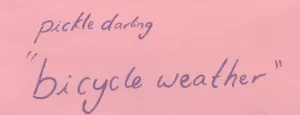 pickle darling
"bicycle weather"